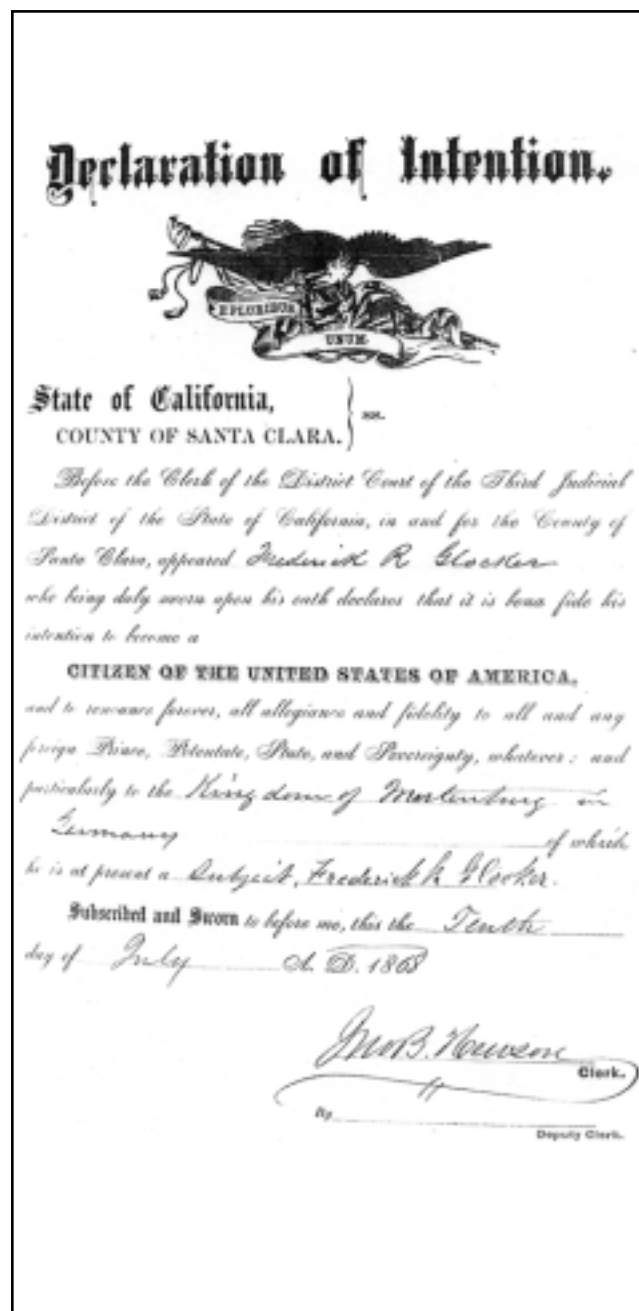 Declaration of Intention.
E PLURIBUS
UNUM.
State of California,
COUNTY OF SANTA CLARA. } ss.
Before the Clerk of the District Court of the Third Judicial
District of the State of California, in and for the County of
Santa Clara, appeared Frederick R Glocker
who being duly sworn upon his oath declares that it is bona fide his
intention to become a
CITIZEN OF THE UNITED STATES OF AMERICA,
and to renounce forever, all allegiance and fidelity to all and any
foreign Prince, Potentate, State, and Sovereignty, whatever: and
particularly to the Kingdom of in
Germany of which
he is at present a Subject, Frederick R Glocker.
Subscribed and Sworn to before me, this the Tenth
day of July A. D. 1868
Jno B. Hewson
Clerk.
By
Deputy Clerk.